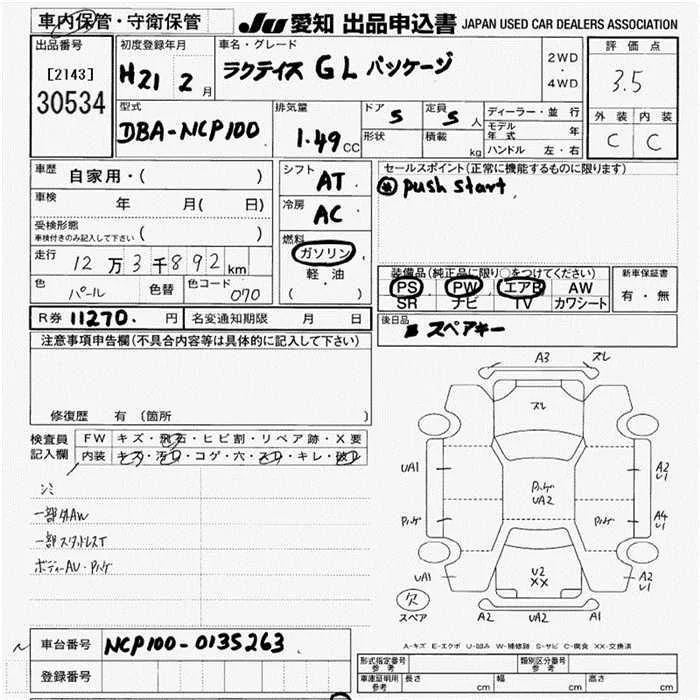 車内保管・守衛保管
JU 愛知 出品申込書 JAPAN USED CAR DEALERS ASSOCIATION
出品番号
[2143]
30534
初度登録年月
H21 2 月
車名・グレード
ラクティス GL パッケージ
2WD
・
4WD
評価点
3.5
外装 内装
C C
型式
DBA-NCP100
排気量
1.49 CC
ドア 5
形状
定員 5 人
積載 kg
ディーラー・並行
モデル年式 年
ハンドル 左・右
車歴 自家用・( )
車検 年 月( 日)
受検形態
車検付きのみ記入して下さい ( )
走行
12万3千892km
色 パール 色替 色コード 070
シフト AT
冷房 AC
燃料
ガソリン
軽・油
( )
セールスポイント(正常に機能するものに限ります)
push start.
装備品(純正品に限り○をつけてください)
PS PW エアB AW
SR ナビ TV カワシート
新車保証書
有・無
R券 11270. 円 名変通知期限 月 日
後日品 スペアキー
注意事項申告欄(不具合内容等は具体的に記入して下さい)
修復歴 有 (箇所 )
検査員記入欄
FW キズ・飛石・ヒビ割・リペア跡・X要
内装 キズ・汚れ・コゲ・穴・スレ・キレ・破れ
シミ
一部外AW
一部スタッドレスT
ボディーAU・Pハゲ
A3 スレ
スレ
UA1
A2
Pハゲ
UA2
Pハゲ
Pハゲ
A4
UA1
U2
XX
A2
欠
スペア
A2 UA2 A1
A-キズ E-エクボ U-凹み W-補修跡 S-サビ C-腐食 XX-交換済
車台番号 NCP100-0135263
登録番号
型式指定番号 参考
類別区分番号 参考
車庫証明用 参考 長さ cm 幅 cm 高さ cm